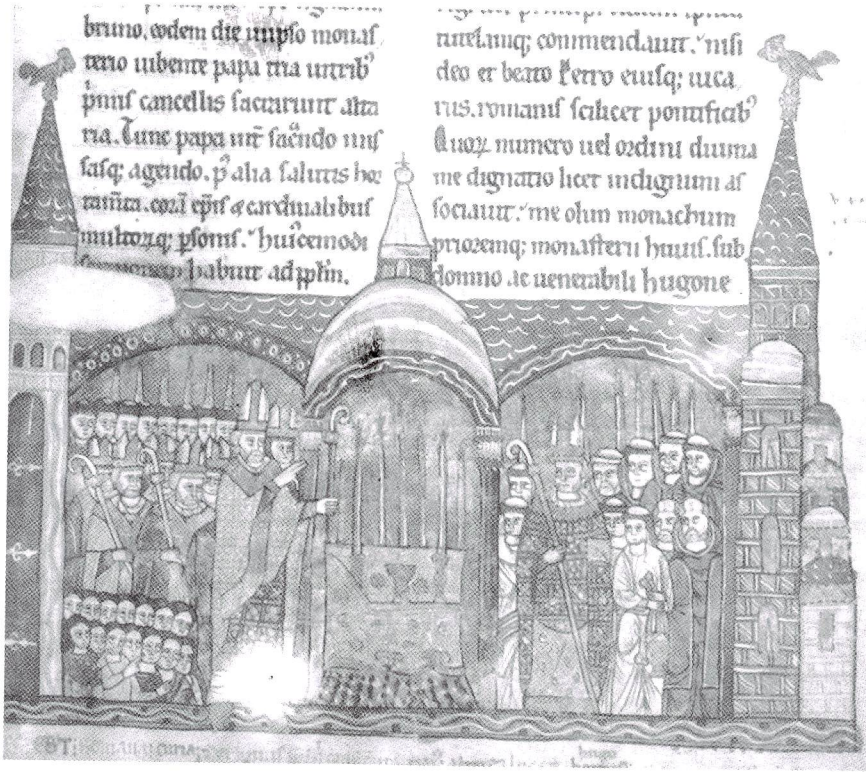 bruno, eodem die in ipso monas
terio iubente papa tria in trib᷒
pͥmis cancellis sacrarunt alta
ria. Tunc papa int̄ sac̄ndo mis
sasq; agendo. p᷒ alia salutis hor
tam̄ta. corā ep̄is & cardinalibus
multorq; psonis. huiͨcemodi
habuit ad ppl̄m.
tutelamq; commendauit. nisi
deo et beato Petro eiusq; uica
riis. romanis scilicet pontificib᷒
Quoꝝ numero uel ordini diuina
me dignatio licet indignum as
sociauit. me olim monachum
prioremq; monasterii huius. sub
domno ac uenerabili hugone